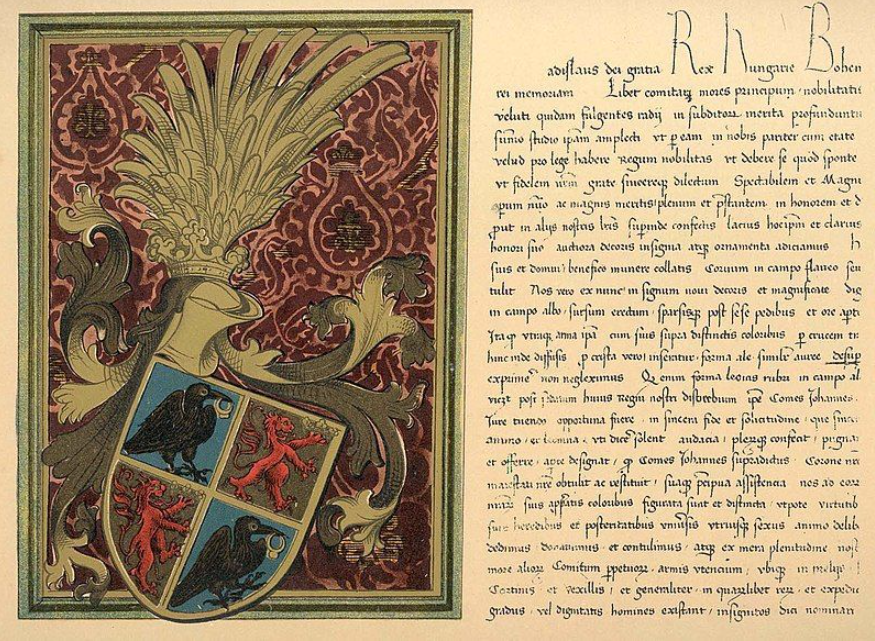 adislaus dei gratia Rex Hungarie Bohem
rei memoriam Libet comitatꝫ mores principum nobilitatis
veluti quidam fulgentes radij in subditorꝫ merita profundunt
sumo studio ipam amplecti vt ꝑ eam in nobis pariter cum etate
velud pro lege habere Regum nobilitas vt debere se quod sponte
vt fidelem nrm grate sincereqꝫ dilectum Spectabilem et Magni
ac magnis meritis plenum et pstantem in honorem et d
put in alijs nostris lris supinde confectis lacius hocipm et clarius
honori suo auctiora decoris insignia atqꝫ ornamenta adiciamus
suis et domui benefico munere collatis Coruum in campo flaueo seu
tulit Nos vero ex nunc in signum noui decoris et magnificue
in campo albo sursum erectum sparsisqꝫ post sese pedibus et ore apti
Itaqꝫ vtraqꝫ arma ipa cum suis supra distinctis coloribus ꝑ crucem
hinc inde diffisis crista vero inseritur forma ale similr auree desup
exprime non negleximus enim forma leonis rubri in campo al
post huius Regni nostri Comes Johannes
Jure tuendo opportuna fuere in sincera fide et solicitudine que
animo et vt dice solent audacia plerꝫqꝫ confecit
et offerre apte designat qꝫ Comes Johannes supradictus Corone
obtulit ac restituit suaqꝫ pcipua assistencia nos ad
suis colouribus figurata sunt et distincta vtpote virtutib
heredibus et posteritatibus vniuersis vtriusqꝫ sexus animo delib
dedimus donauimus et contulimus atqꝫ ex mera plenitudine
more aliorꝫ Comitum ppetuorꝫ armis vtencium vbiqꝫ in
Cortinis et vexillis et generaliter in quarꝫlibet rerꝫ et expedu
gradus vel dignitatis homines existant insignitos dici nominari